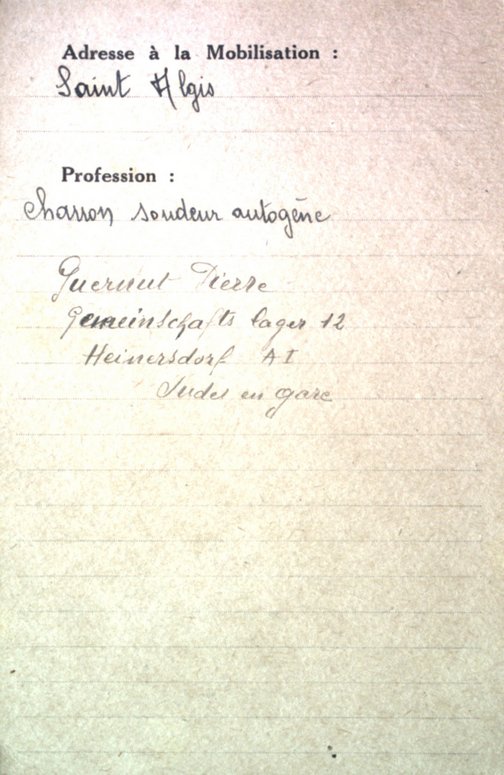 Adresse à la Mobilisation :
Saint Algis
Profession :
Charron soudeur autogène
Guernut Pierre
Gemeinschafts lager 12
Heinersdorf A I
en gare